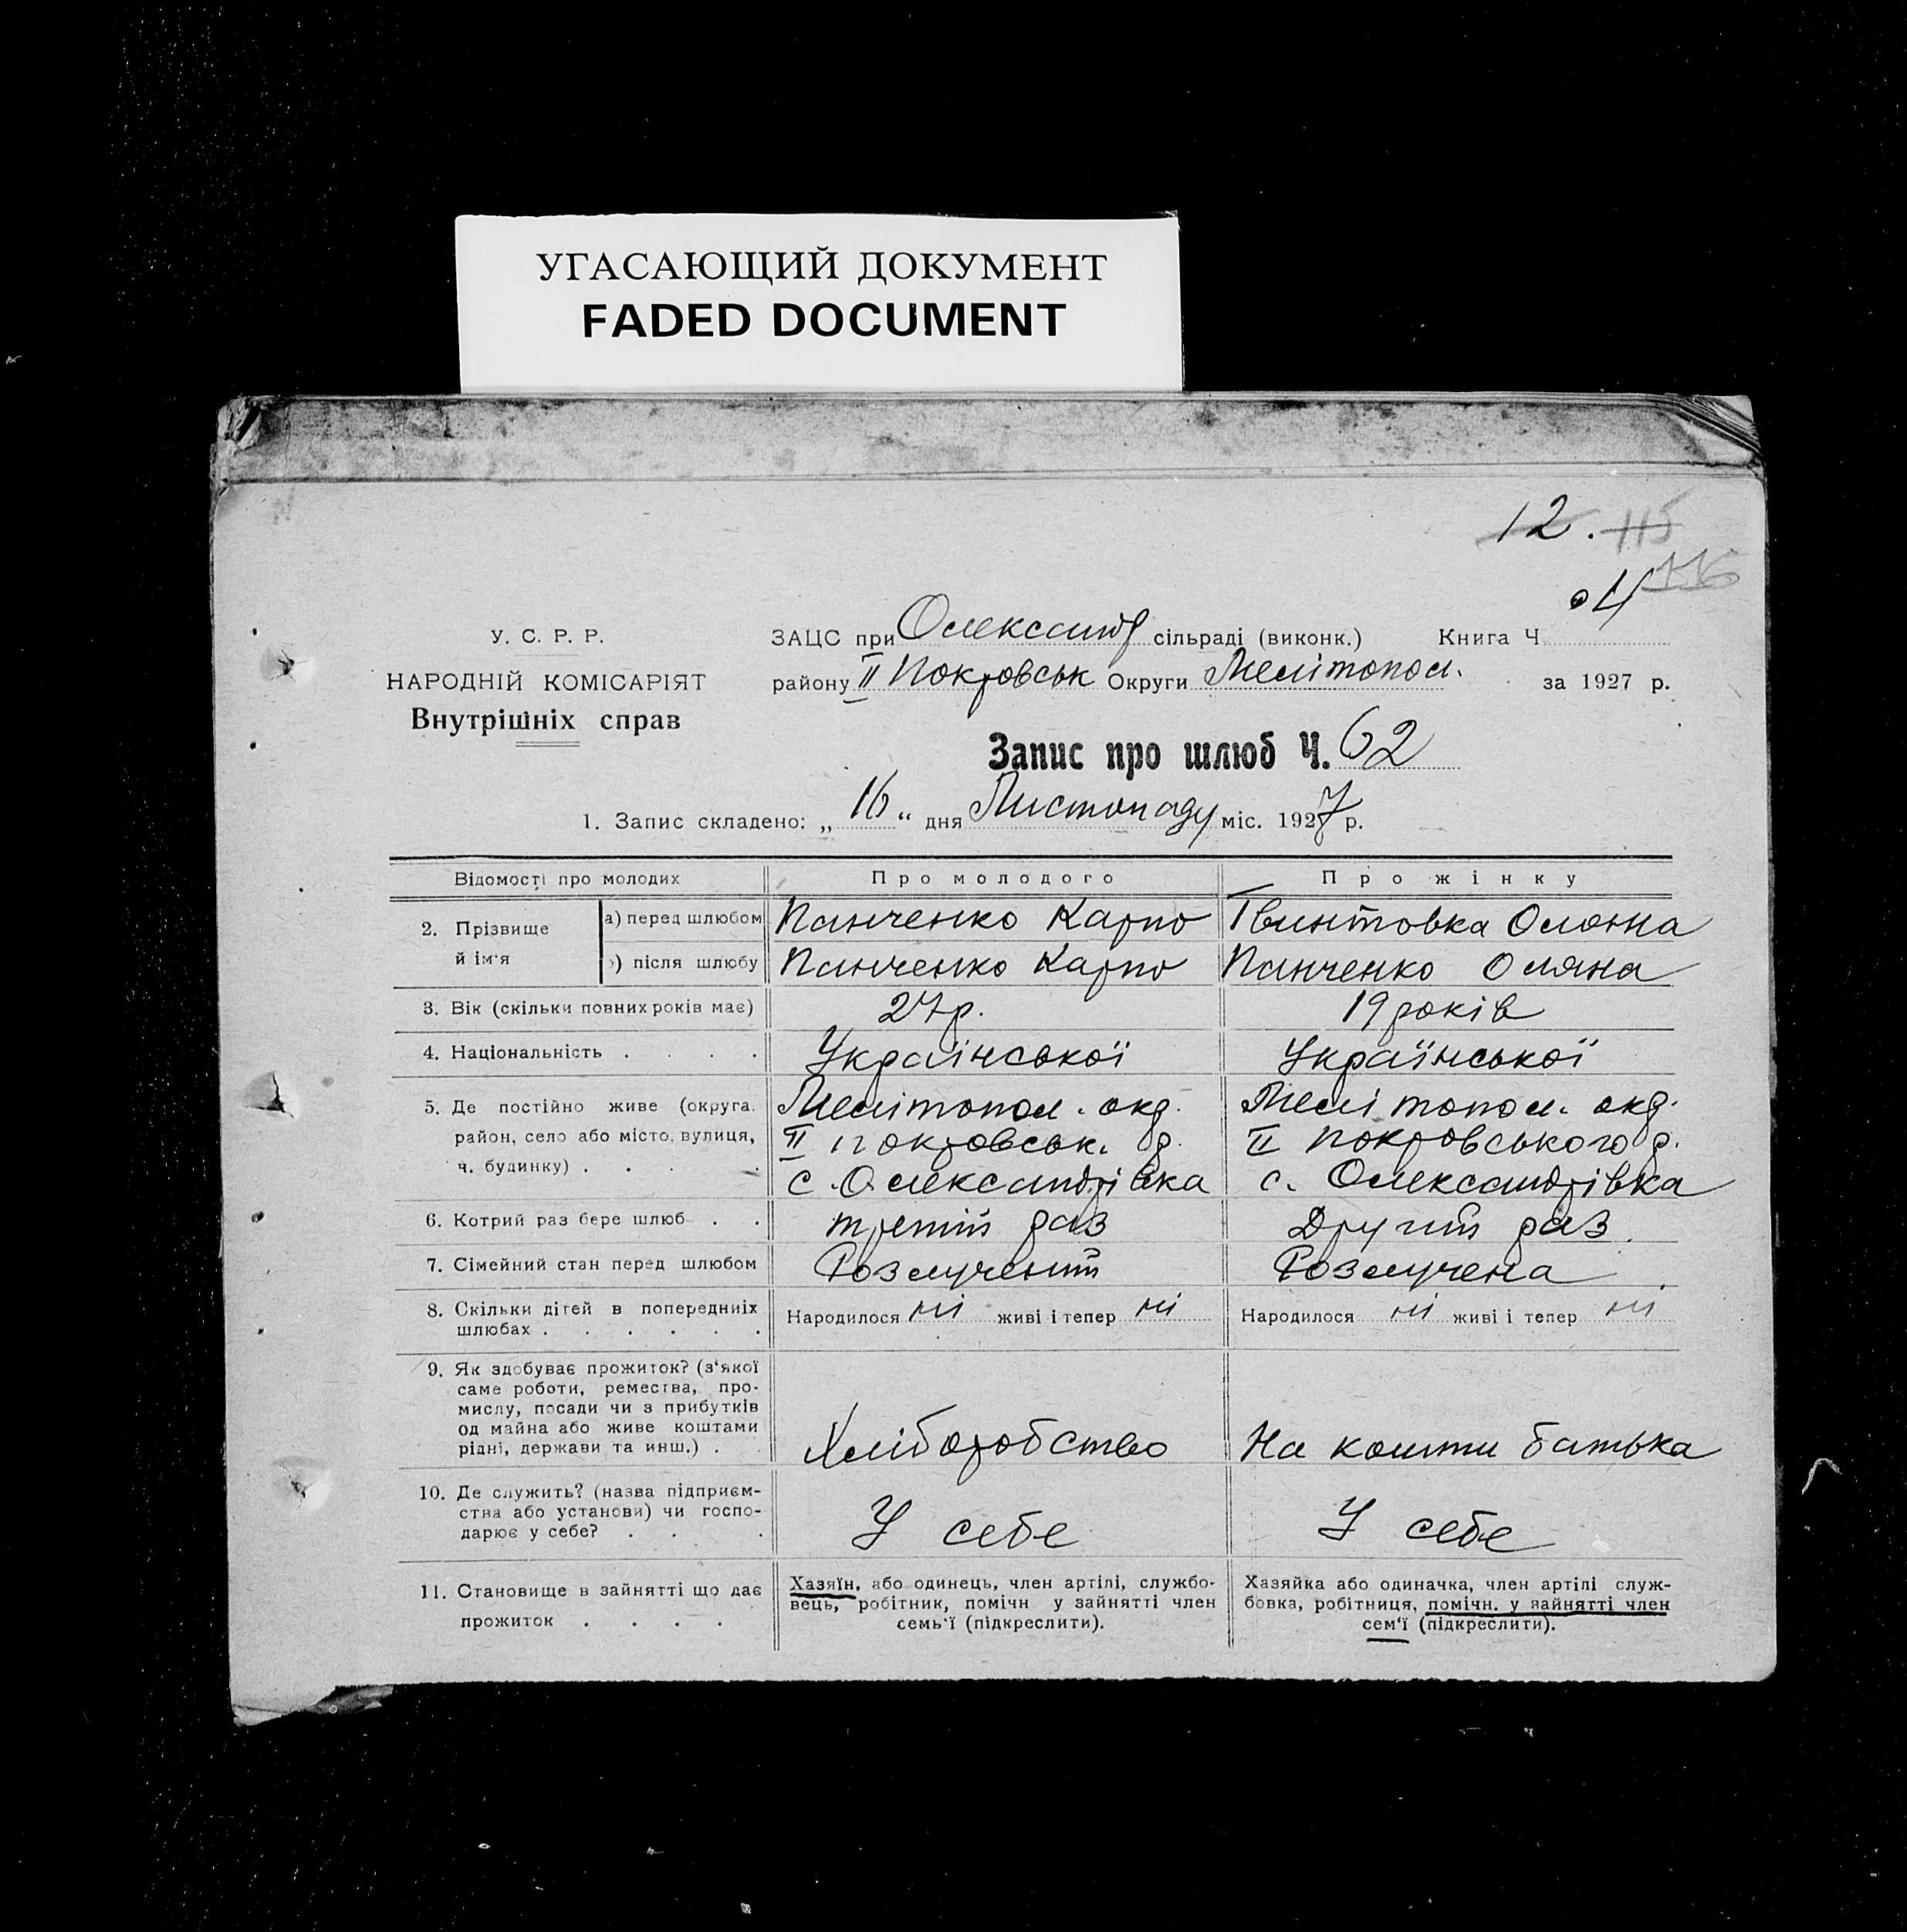 УГАСАЮЩИЙ ДОКУМЕНТ
FADED DOCUMENT
12. 115
116
У. С. Р. Р.
НАРОДНІЙ КОМІСАРІЯТ
Внутрішніх справ
ЗАЦС при Олександр сільраді (виконк.) Книга Ч 4
району II Покровськ Округи Мелітопол. за 1927 р.
Запис про шлюб Ч. 62
1. Запис складено: „ 16 “ дня Листопаду міс. 1927 р.
Відомості про молодих Про молодого Про жінку
2. Прізвище й ім'я а) перед шлюбом Панченко Карпо Гвинтовка Оляна
б) після шлюбу Панченко Карпо Панченко Оляна
3. Вік (скільки повних років має) 27 р. 19 років
4. Національність . . . . Української Української
5. Де постійно живе (округа. Мелітопол. окр. Мелітопол. окр.
район, село або місто, вулиця, II Покровськ. р. II Покровського р.
ч. будинку) . . . . с. Олександрівка с. Олександрівка
6. Котрий раз бере шлюб . . третій раз Другий раз
7. Сімейний стан перед шлюбом Розлучений Розлучена
8. Скільки дітей в попередниіх Народилося ні живі і тепер ні Народилося ні живі і тепер ні
шлюбах . . . . . .
9. Як здобуває прожиток? (з'якої
саме роботи, ремества, про-
мислу, посади чи з прибутків
од майна або живе коштами
рідні, держави та инш.) . Хліборобство На кошти батька
10. Де служить? (назва підприєм-
ства або установи) чи госпо-
дарює у себе? . . . У себе У себе
11. Становище в зайнятті що дає Хазяїн, або одинець, член артілі, службо- Хазяйка або одиначка, член артілі служ-
прожиток . . . . вець, робітник, помічн у зайнятті член бовка, робітниця, помічн. у зайнятті член
семь'ї (підкреслити). сем'ї (підкреслити).